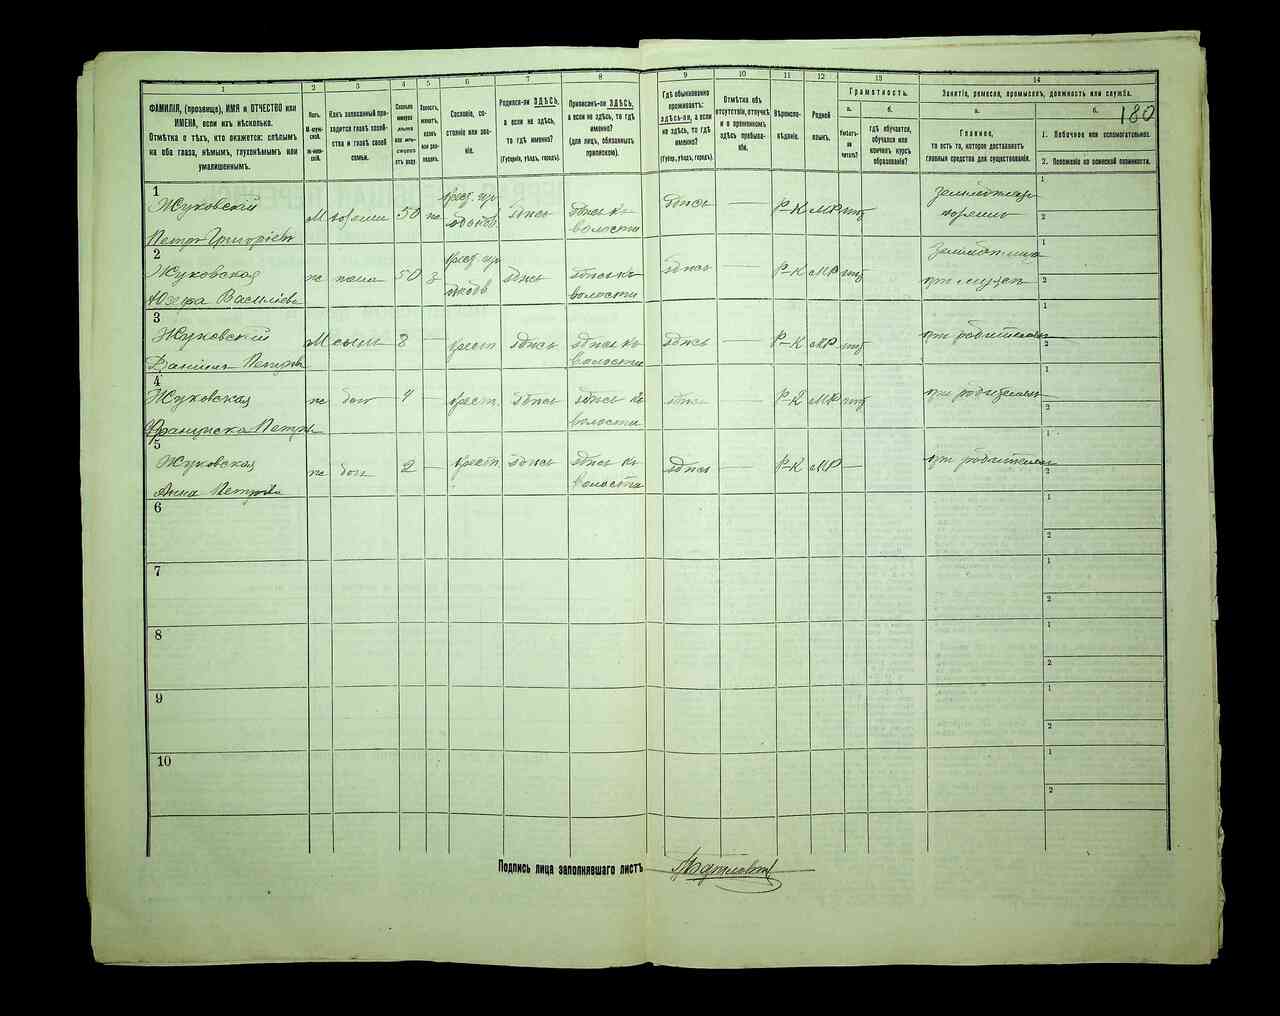 180
1
2
3
4
5
6
7
8
9
10
11
12
13
14
ФАМИЛІЯ, (прозвище), ИМЯ и ОТЧЕСТВО или
ИМЕНА, если ихъ нѣсколько.
Отмѣтка о тѣхъ, кто окажется: слѣпымъ
на оба глаза, нѣмымъ, глухонѣмымъ или
умалишеннымъ.
Полъ.
Какъ записанный при-
ходится главѣ хозяй-
ства и главѣ своей
семьи.
Сословіе, со-
стояніе или зва-
ніе.
Родился-ли ЗДѢСЬ,
а если не здѣсь,
то гдѣ именно?
(Губернія, уѣздъ, городъ).
Приписанъ-ли ЗДѢСЬ,
а если не здѣсь, то гдѣ
именно?
(для лицъ, обязанныхъ
припискою).
Гдѣ обыкновенно
проживаетъ:
здѣсь-ли, а если
не здѣсь, то гдѣ
именно?
(Губернія, уѣздъ, городъ).
Отмѣтка объ
отсутствіи, отлучкѣ
и о временномъ
здѣсь пребыва-
ніи.
Вѣроиспо-
вѣданіе.
Родной
языкъ.
Грамотность.
а.
Умѣетъ-
ли
читать?
б.
гдѣ обучается,
обучался или
кончилъ курсъ
образованія?
Занятіе, ремесло, промыселъ, должность или служба.
а.
Главное,
то есть то, которое доставляетъ
главныя средства для существованія.
б.
1. Побочное или вспомогательное.
2. Положеніе по воинской повинности.
1
Жуковскій
Петръ Григоріевъ
М
50
здѣсь
здѣсь къ
волости
здѣсь
—
Р-К
нѣтъ
1
2
2
Жуковская
Юзефа Василіева
жена
50
здѣсь
здѣсь къ
волости
здѣсь
—
Р-К
нѣтъ
1
2
3
Жуковскій
Петровъ
М
сынъ
8
—
крест.
здѣсь
здѣсь къ
волости
здѣсь
—
Р-К
нѣтъ
при родителяхъ
1
2
4
Жуковская
Франциска Петров
доч
4
—
крест.
здѣсь
здѣсь къ
волости
здѣсь
—
Р-К
нѣтъ
при родителяхъ
1
2
5
Жуковская
Анна Петрова
доч
2
—
крест
здѣсь
здѣсь къ
волости
здѣсь
—
Р-К
—
при родителяхъ
1
2
6
1
2
7
1
2
8
1
2
9
1
2
10
1
2
Подпись лица заполнявшаго листъ